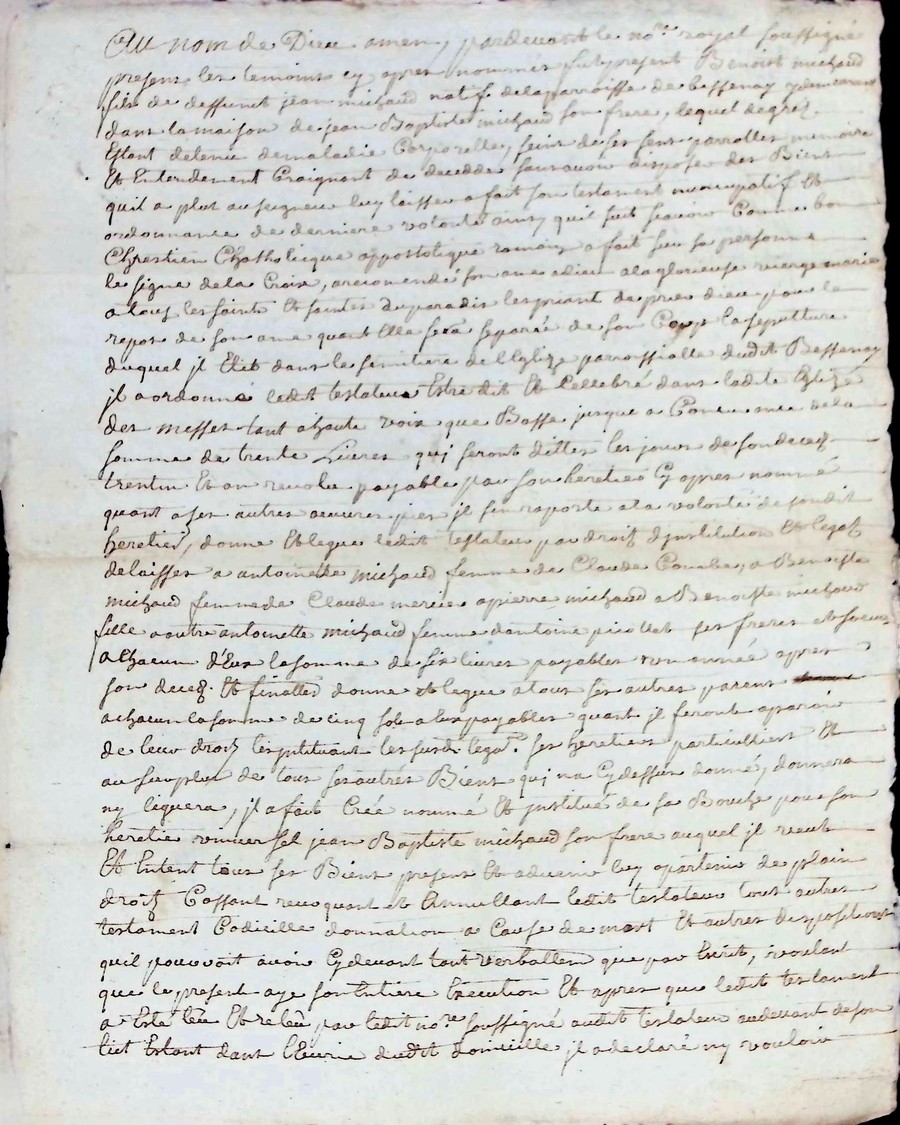 Au nom de Dieu amen, pardevant le no.re royal soussigné
presens les temoins cy apres nommés fut present Benoist michaud
fils de deffunct jean michaud natif de la parroisse de bessenay y demeurant
dans la maison de jean Baptiste michaud son frere, lequel de gré
Estant detenu de maladie Corporelle, sein de ses sens parrolles memoire
Et Entendement Craignant de decedde sans avoir disposé des Biens
quil a plut au seigneur luy laisser a fait son testament nuncupatif Et
ordonnance de derniere volonté ainsy quil suit scavoir Comme bon
Chrestien Chatholicque appostolique romain a fait sur sa personne
le signe de la Croix, arecomendé son ame adieu ala glorieuse vierge marie
a tous les saints Et saintes du paradis les priant de prier dieu pour le
repos de son ame quant Elle sera separée de son Corp la sepulture
duquel jl Elit dans le semitiere de l'Eglize parrossialle dudit Bessenay
jl a ordonné ledit testateur Estre dit Et Cellebré dans ladite Eglize
des messes tant a haute voix que Basse jusque a Concurance de la
somme de trente Livres quj seront dittes les jours de son deceds
trentin Et an revolu payable par son heretier Cy apres nommé
quant a ses autres oeuvres pies jl sen raporte a la volonté de sondit
heretier, donne Et legue ledit testateur par droit d'institution Et legat
delaisser a antoinette michaud femme de Claude Combe, a Benoiste
michaud femme de Claude mercier a pierre michaud a Benoiste michaud
fille a autre antoinette michaud femme dantoine ses freres et soeurs
a chacun d'Eux la somme de six livres payables une année apres
son deced. Et finalled donne et legue a tous ses autres parens
a chacun la somme de cinq sols a Eux payables quant jl feront aparoir
de leur droit les jnstituant les surd. legat.s ses heretiers particulliers Et
au surplus de tous ses autres Biens quj na Cy dessus donné, donnera
ny leguera, jl a fait Créé nommé Et jnstitué de sa Bouche pour son
heretie universel jean Baptiste michaud son frere auquel jl veut
Et Entent tous ses Biens present Et advenir luy apartenir de plain
droit Cassant revoquant et Annullant ledit testateur tous autres
testament Codicille donnation a Cause de mort Et autres dispositions
quil pouvoit avoir Cy devant tant verballem que par Escrit, voulant
que le present aye son Entiere Execution Et apres que ledit testament
a Esté leu Et releu par ledit no.re soussigné audit testateur au devant de son
lict Estant dans l'Ecurie dudit domicille jl a declaré ny vouloir